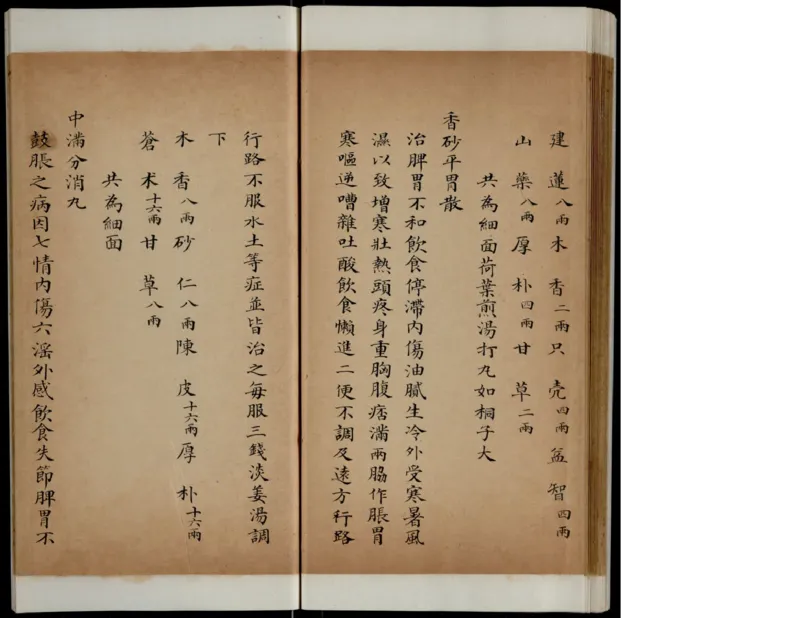 建蓮八兩木香二兩只壳四兩益智四兩
山藥八兩厚朴四兩甘草二兩
共為細面荷葉煎湯打丸如桐子大
香砂平胃散
治脾胃不和飲食停滯內傷油膩生冷外受寒暑風
濕以致增寒壯熱頭疼身重胸腹痞滿兩脇作脹胃
寒嘔逆嘈雜吐酸飲食懶進二便不調及遠方行路
行路不服水土等症並皆治之每服三錢淡姜湯調
下
木香八兩砂仁八兩陳皮十六兩厚朴十六兩
蒼术十六兩甘草八兩
共為細面
中滿分消丸
鼓脹之病因七情內傷六滛外感飲食失節脾胃不